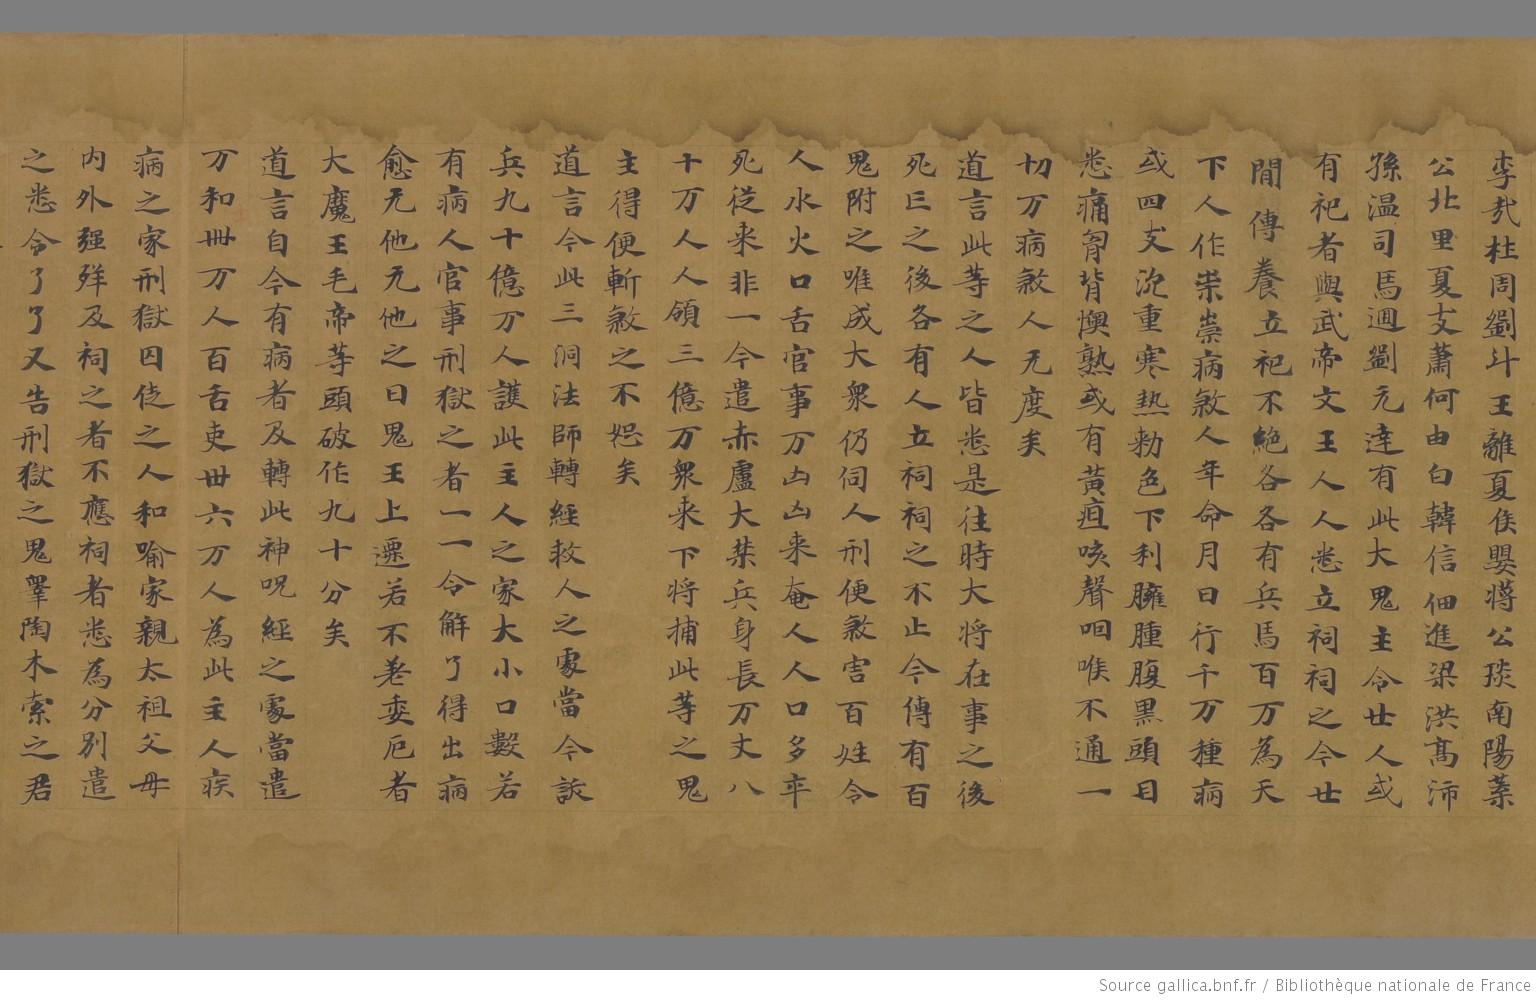 李哉杜周劉斗王離夏侯嬰蔣公琰南陽葉
公北里夏攴蕭何由白韓信佃進梁洪高沛
孫温司馬迴劉元達有此大鬼主令廿人或
有祀者與武帝文王人人悉立祠祠之今廿
間傳養立祀不絶各各有兵馬百万為天
下人作祟祟病煞人年命月日行千万種病
或四支沉重寒熱勑色下利臃腫腹黒頭目
悉痛胷背懊熟或有黄疸咳聲咽喉不通一
切万病煞人无度矣
道言此等之人皆悉是往時大将在事之後
死亡之後各有人立祠祠之不止今傳有百
鬼附之唯成大衆仍伺人刑便煞害百姓令
人水火口舌官事万凶凶来奄人人口多卒
死從来非一今遣赤盧大桀兵身長万丈八
十万人人領三億万衆来下将捕此等之鬼
主得便斬煞之不恕矣
道言今此三洞法師轉經救人之處當令訴
兵九十億万人護此主人之家大小口數若
有病人官事刑獄之者一一令解了得出病
愈无他无他之日鬼王上遷若不差委厄者
大魔王毛帝等頭破作九十分矣
道言自今有病者及轉此神呪經之處當遣
万和卌万人百舌吏卅六万人為此主人疾
病之家刑獄囚徒之人和喻家親太祖父母
内外强殍及祠之者不應祠者悉為分別遣
之悉令了了又告刑獄之鬼睪陶木索之君